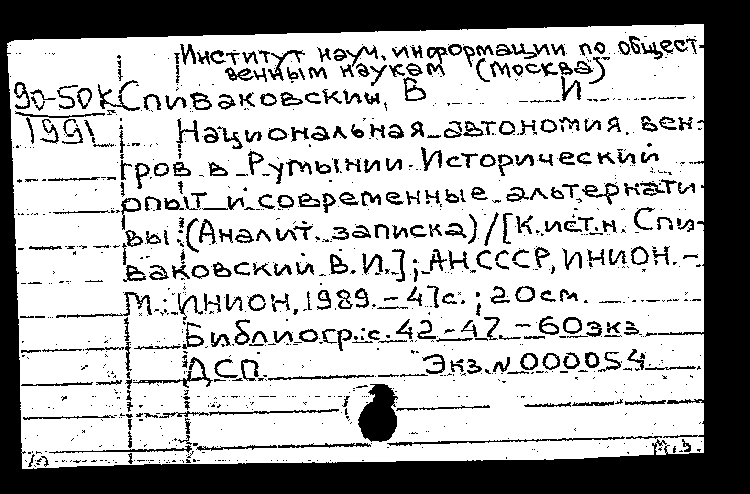 Институт науч. информации по общест-
венным наукам (Москва)
90-50К Спиваковский, В И
1991 Национальная автономия вен-
гров в Румынии. Исторический
опыт и современные альтернати-
вы: (Аналит. записка) / [К.ист.н. Спи-
ваковский В.И.]; АН СССР, ИНИОН. -
М.: ИНИОН, 1989. - 47с.; 20см.
Библиогр.: с. 42-47. - 60экз
ДСП. Экз. N 000054